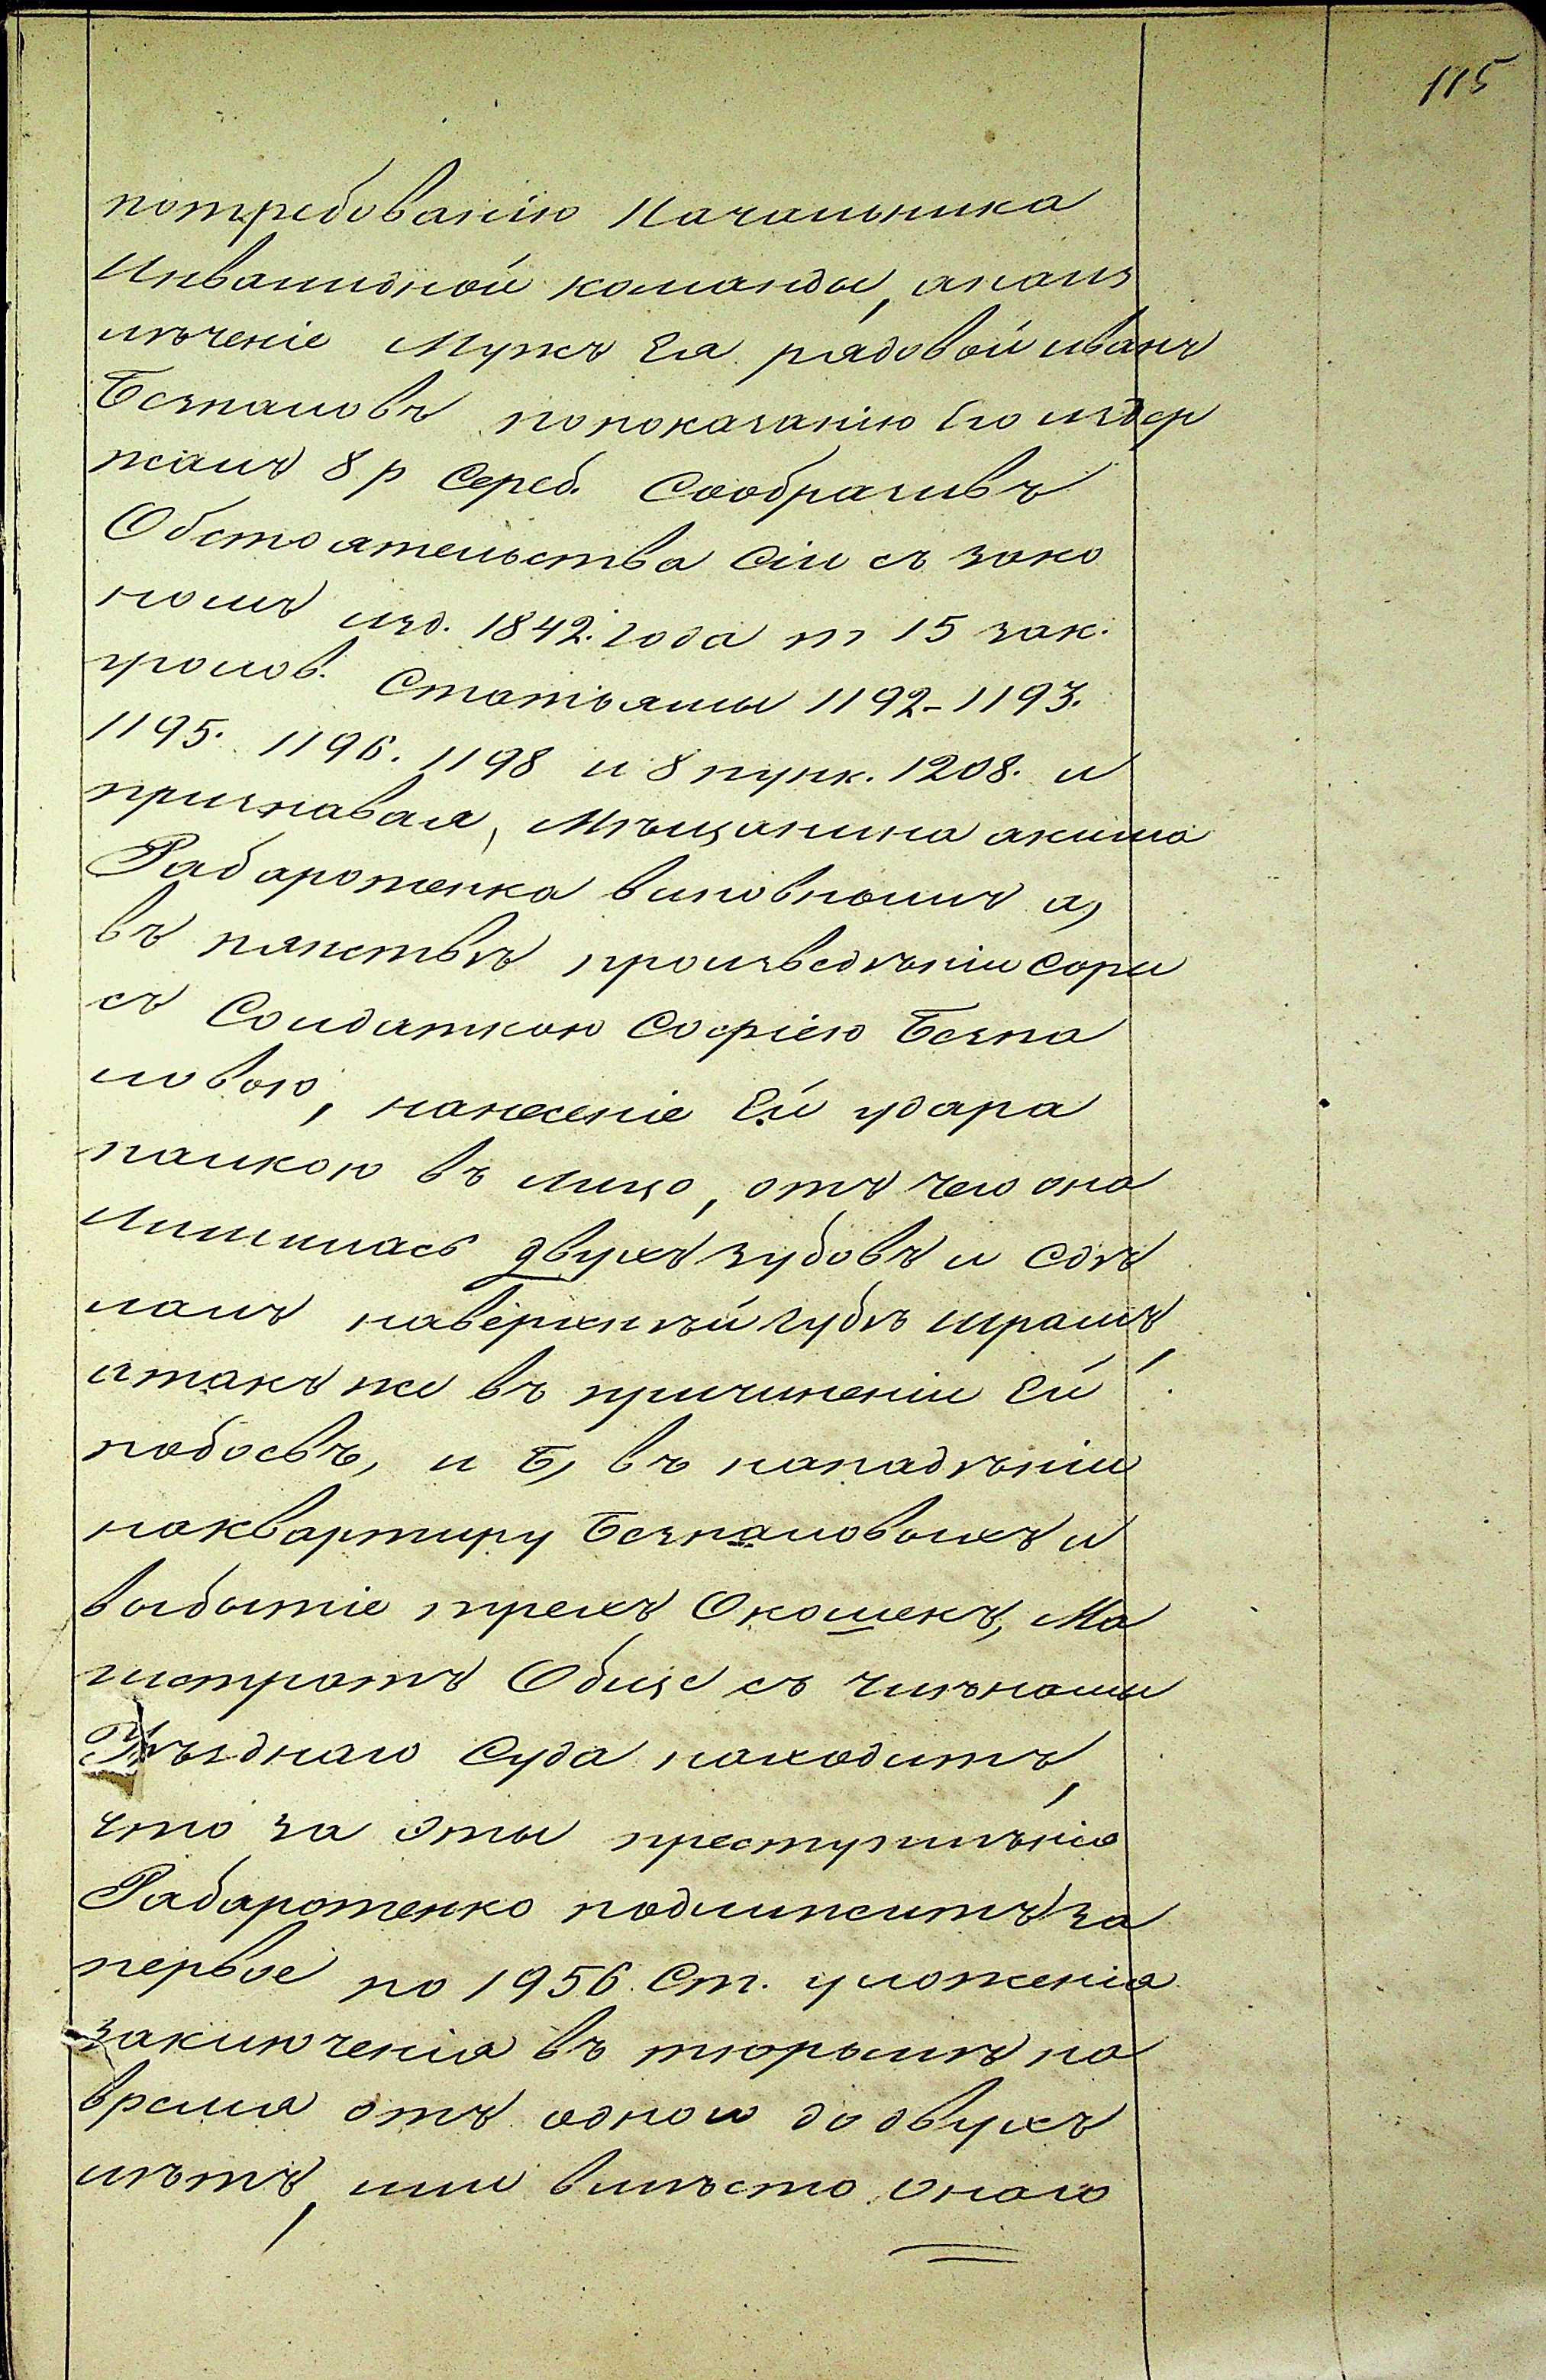 115
потребованію Начальника
Инвалидной команды, анаиз
лѣченіе Мужъ Ея рядовой иванъ
Безпаловъ попоказанію Его издер
жалъ 8 р Сереб. Сообразивъ
Обстоятельства Сіи съ зако
номъ изд. 1842. года т 15 зак.
уголов. Статьямы 1192-1193.
1195. 1196. 1198 и 8 пунк. 1208. и
признавая, Мѣщанина акима
Рабаротенка виновнымъ а,
въ пянствѣ произведѣніи Соры
съ Солдаткою Софіею Безпа
ловою, нанесеніе Ей удара
палкою въ лицо, отъ чего она
лишилась двухъ зубовъ и Сдѣ
ланъ наверхнѣй губѣ шрамъ,
атакъ же въ причиненіи Ей
побоевъ, и Б, въ нападѣніи
наквартиру Безпаловыхъ и
выбытіе трехъ Окошекъ, Ма
гистратъ Обще съ Членами
Уѣзднаго Суда находитъ,
что за эты преступлѣнія
Рабаротенко подлижитъ за
первое по 1956. Ст. уложенія
заключенія въ тюрьмѣ на
время отъ одного до двухъ
лѣтъ, или вмѣсто онаго